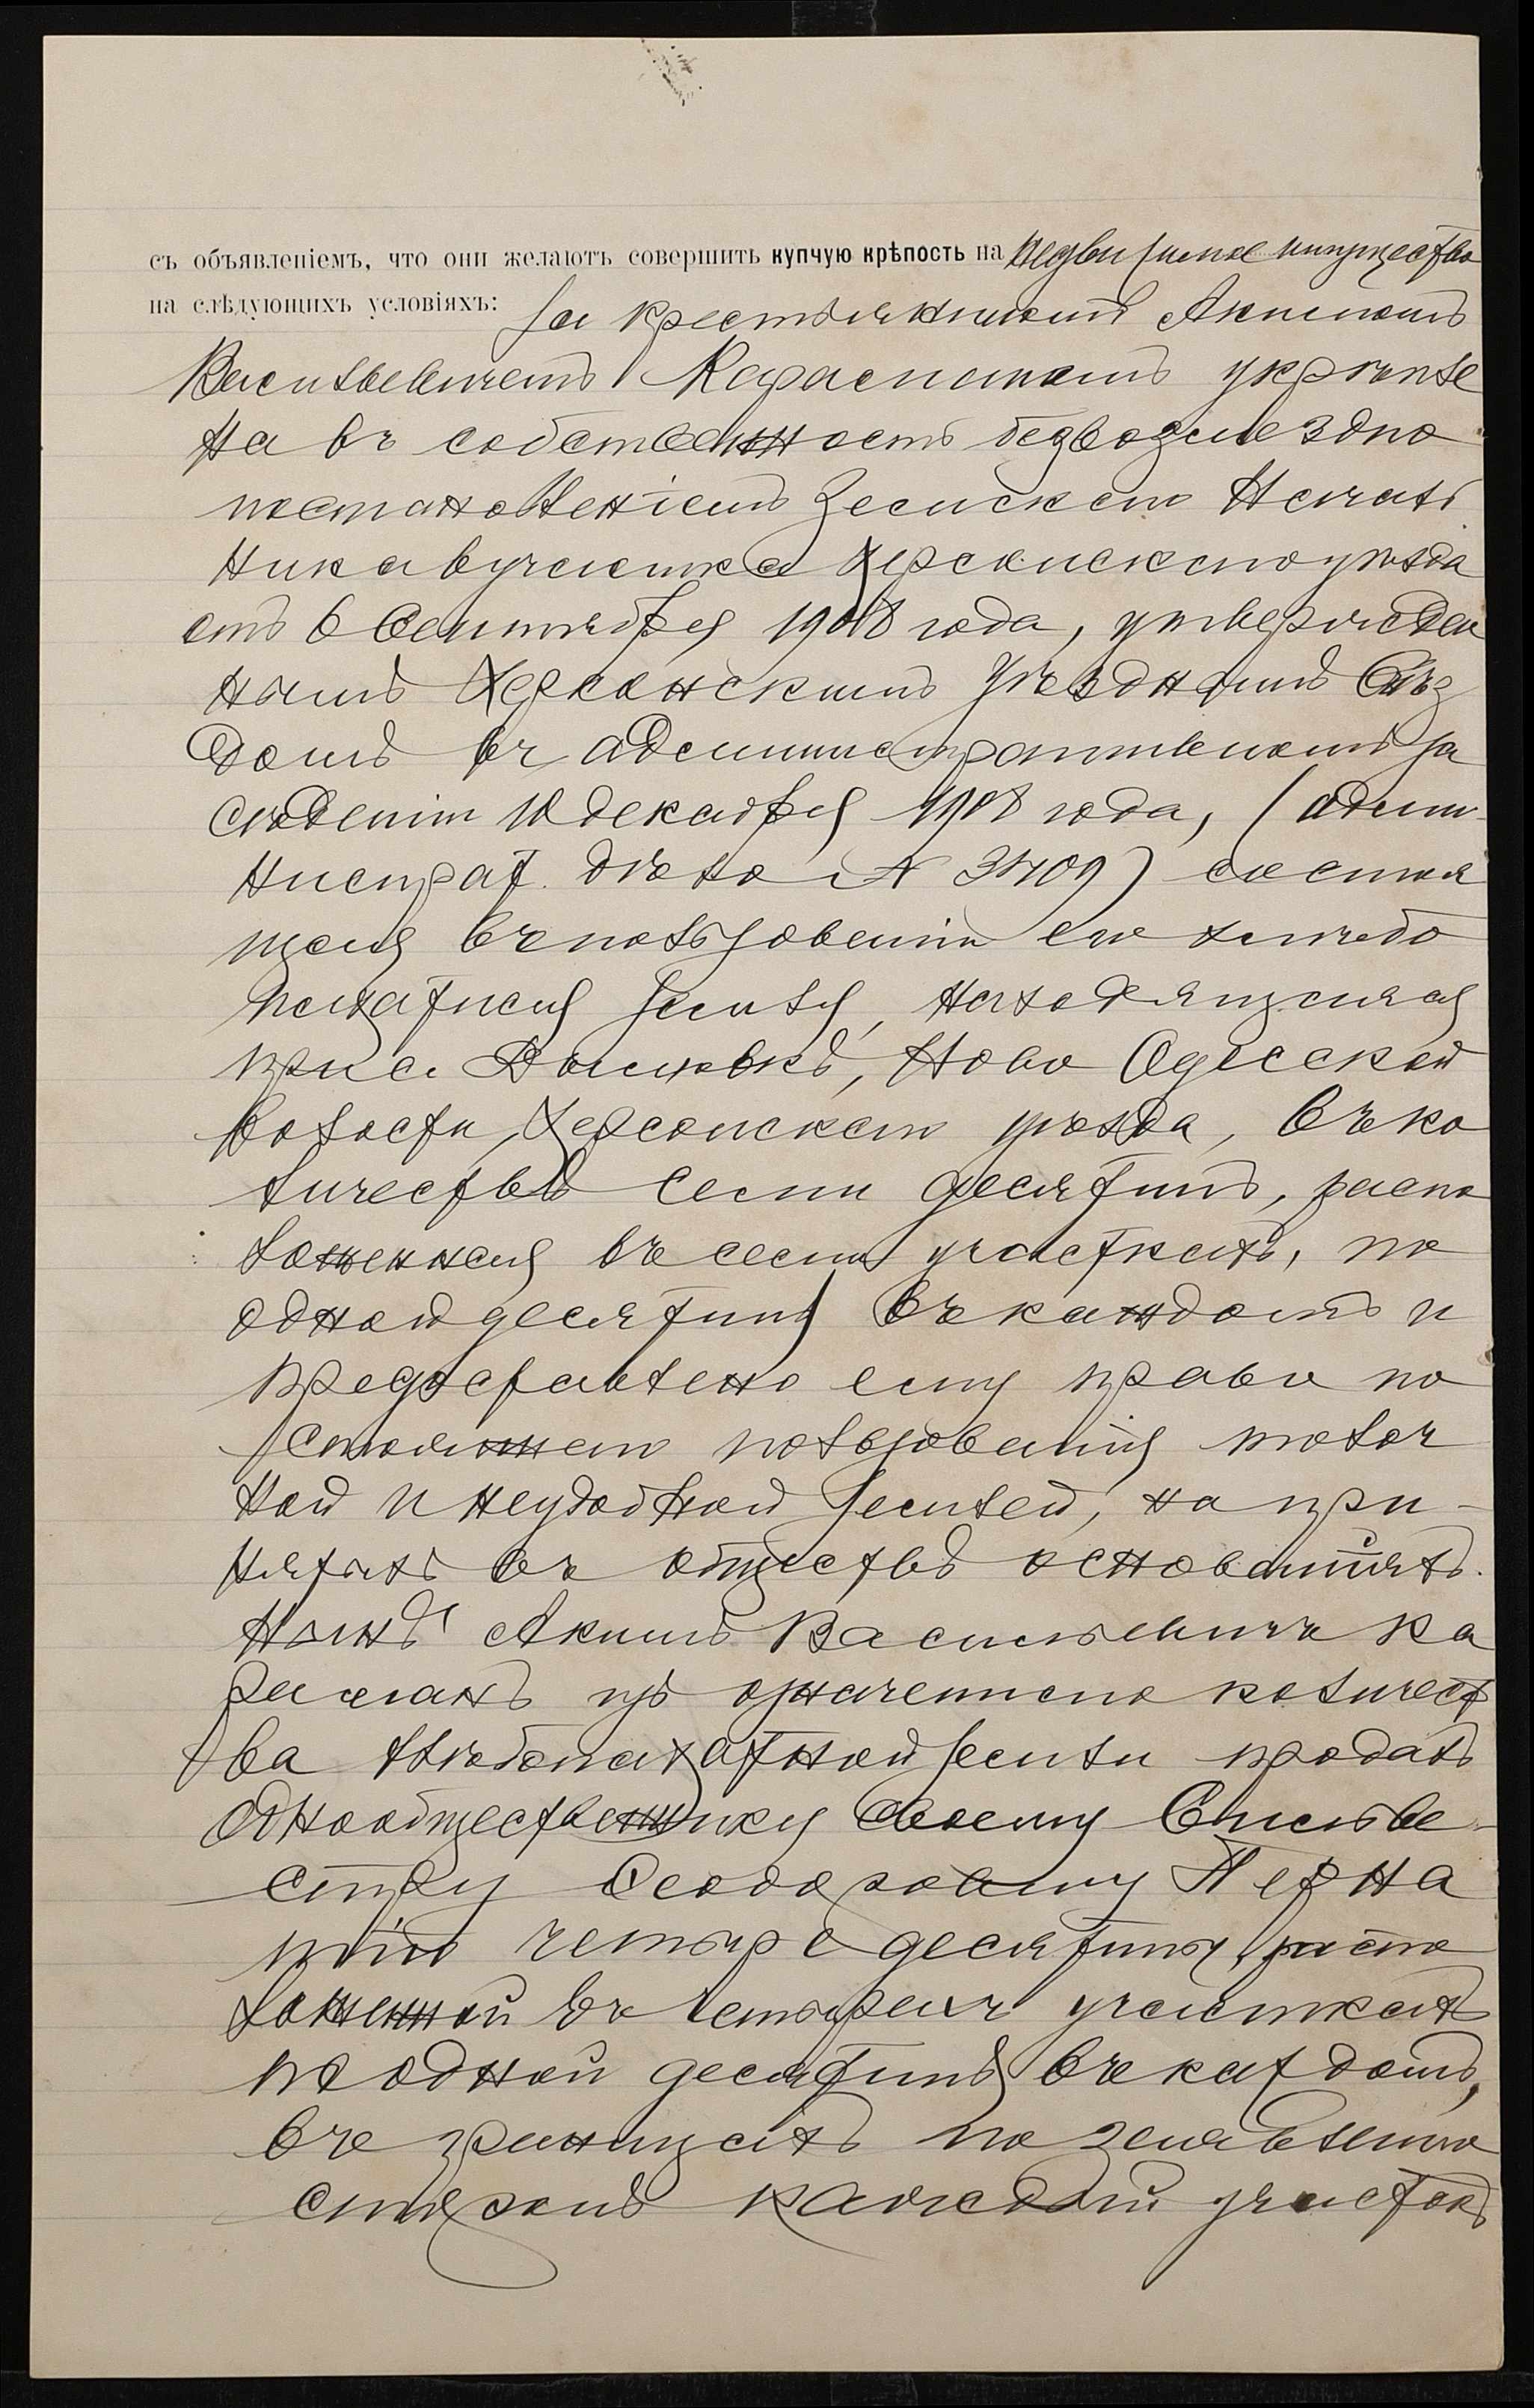 съ объявленіемъ, что они желаютъ совершить купчую крѣпость на недвижимое имущество
на слѣдующихъ условіяхъ: За крестьяниномъ Акимомъ
Васильевичемъ укрѣпле
на въ собственность безвозмездно
постановленіемъ Земскаго Началь
ника участка Херсонскаго уѣзда
отъ 6 Сентября 1908 года, утвержден
нымъ Херсонскимъ Уѣзднымъ Съѣз
домъ въ административномъ за
сѣданіи 10 декабря 1908 года, (адми
нистрат. дѣло №) состоя
щая въ пользованіи его хлѣбо
пахатная земля, находящаяся
при с. Дымовкѣ, Ново Одесской
волости, Херсонскаго уѣзда, въ ко
личествѣ семи десятинъ, распо
ложенная въ семи участкахъ, по
одной десятинѣ въ каждомъ и
предоставлено ему право по
стояннаго пользованія толоч
ной и неудобной землей, на при-
нятыхъ въ обществѣ основаніяхъ.
Нынѣ Акимъ Васильевичъ Ка
раманъ изъ означеннаго количест
ва хлѣбопахатной земли продалъ
однообщественнику своему Сильве-
стру Ѳеодоровичу
четыре десятины, распо
ложенной въ четырехъ участкахъ
по одной десятинѣ въ каждомъ,
въ границахъ по заявленію
сторонъ каждый участокъ